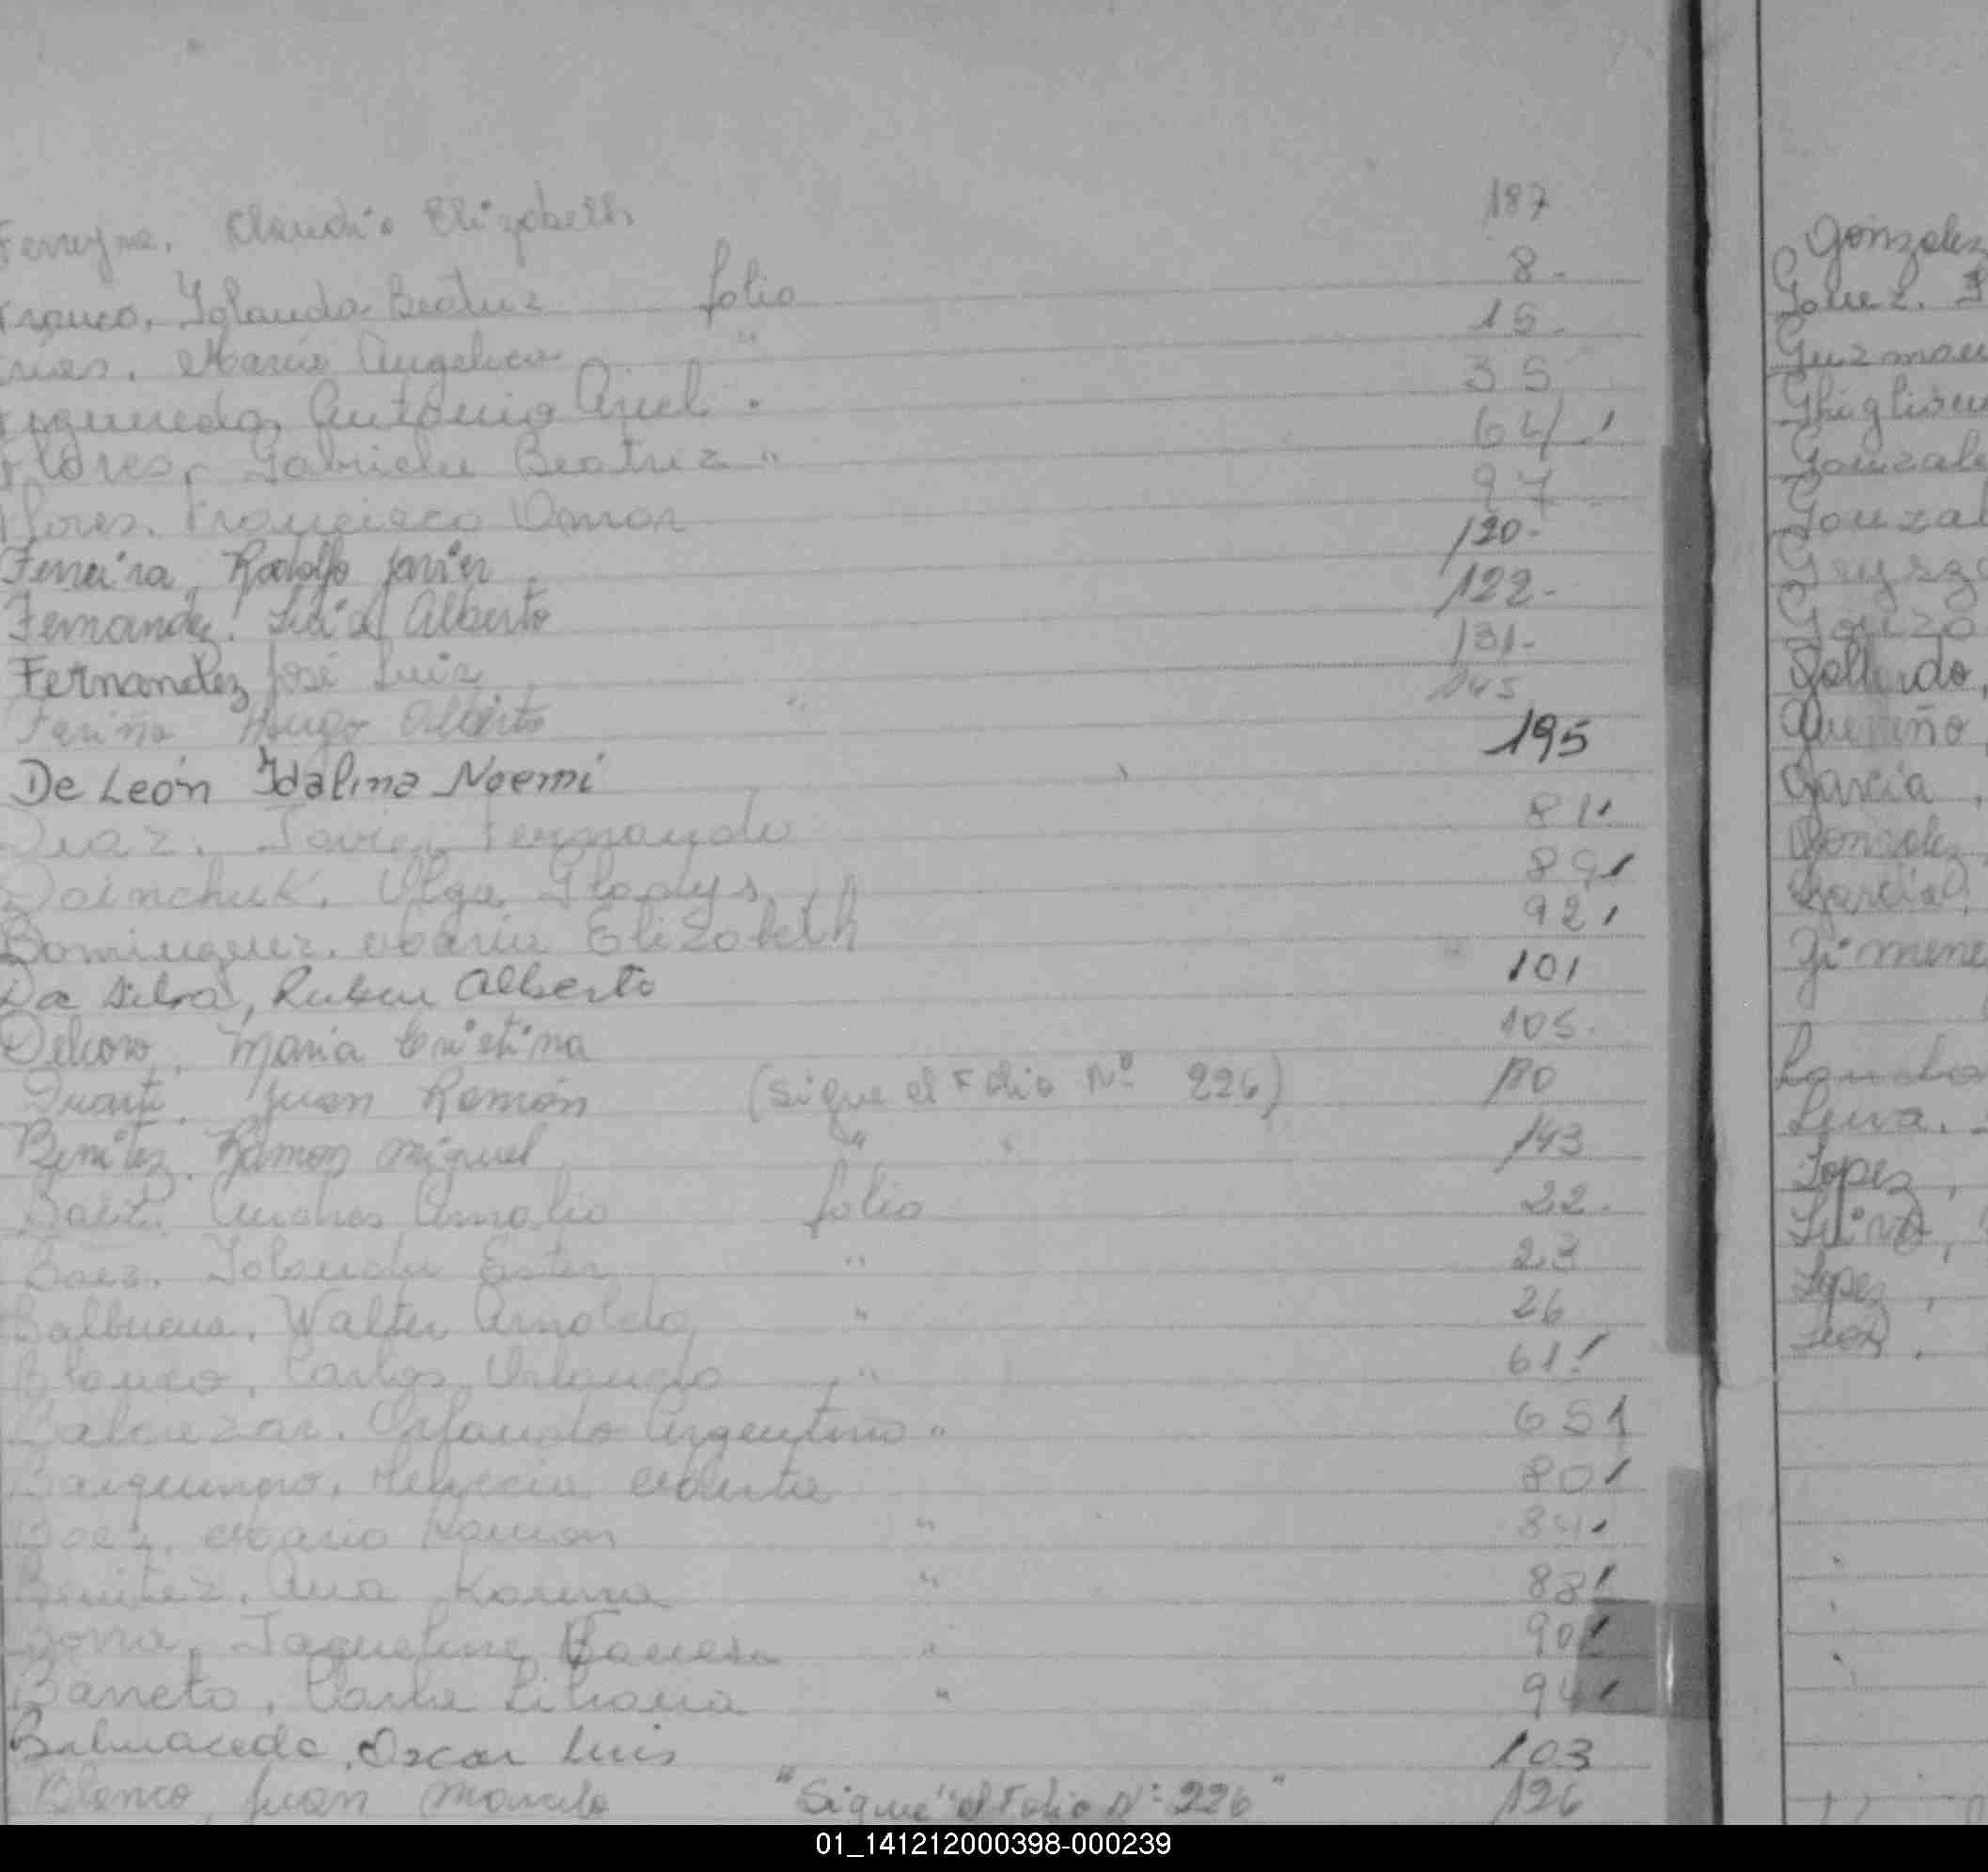 Ferreyra, Claudia Elizabeth 187
Franco, Yolanda Beatriz folio 8.
María Angelica " 15.
Figueredo, Antonio Ariel . 35
Flores, Gabriela Beatriz " 64
Flores, Francisco Omar 97
Ferreira, Rodolfo Javier 120.
Fernandez, Alberto 122.
Fernandez José Luis 131.
Fariña Hugo Alberto " 145
De León Idalina Noemí 195
Diaz, Javier Fernando 81
Doinchuk, Olga Gladys 89
Dominguez, María Elizabeth 92
Da Silva, Ruben Alberto 101
Maria Cristina 105.
Duarte, Juan Ramón (Sigue al Folio Nº 226) 110
Benitez, Ramon Miguel " " 143
Baez, Andres Amalio folio 22.
Baez, Yolanda Ester " 23
Balbuena, Walter Arnoldo " 26
Blanco, Carlos Orlando " 61
Balcazar, Orlando Argentino " 65
80
Baez, Mario Ramon " 84
Benitez, Ana Karina " 88
Jaqueline Vanesa " 90
Barreto, Carla Liliana " 94
Balmaceda, Oscar Luis 103
Blanco, Juan Marcelo "Sigue" al Folio Nº: 226" 126
Gonzalez
Gomez.
Guzman
Gonzal
Gonzal
Gonza
Gallardo,
Garcia,
Gonzalez
Garcia,
Gimene
Leiva.
Lopez,
Lopez,
Leon,
01_141212000398-000239